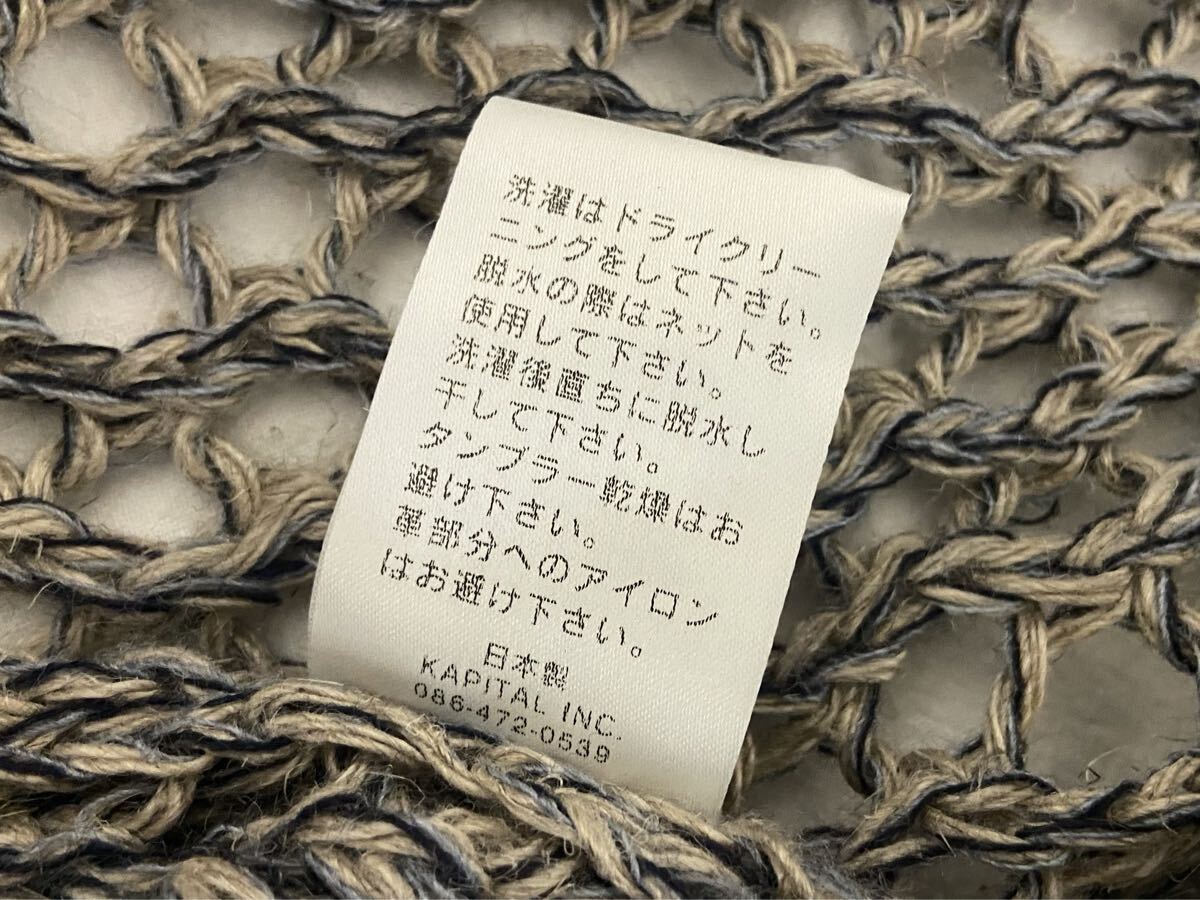 洗濯はドライクリー
ニングをして下さい。
脱水の際はネットを
使用して下さい。
洗濯後直ちに脱水し
干して下さい。
タンブラー乾燥はお
避け下さい。
革部分へのアイロン
はお避け下さい。
日本製
KAPITAL INC.
086-472-0539